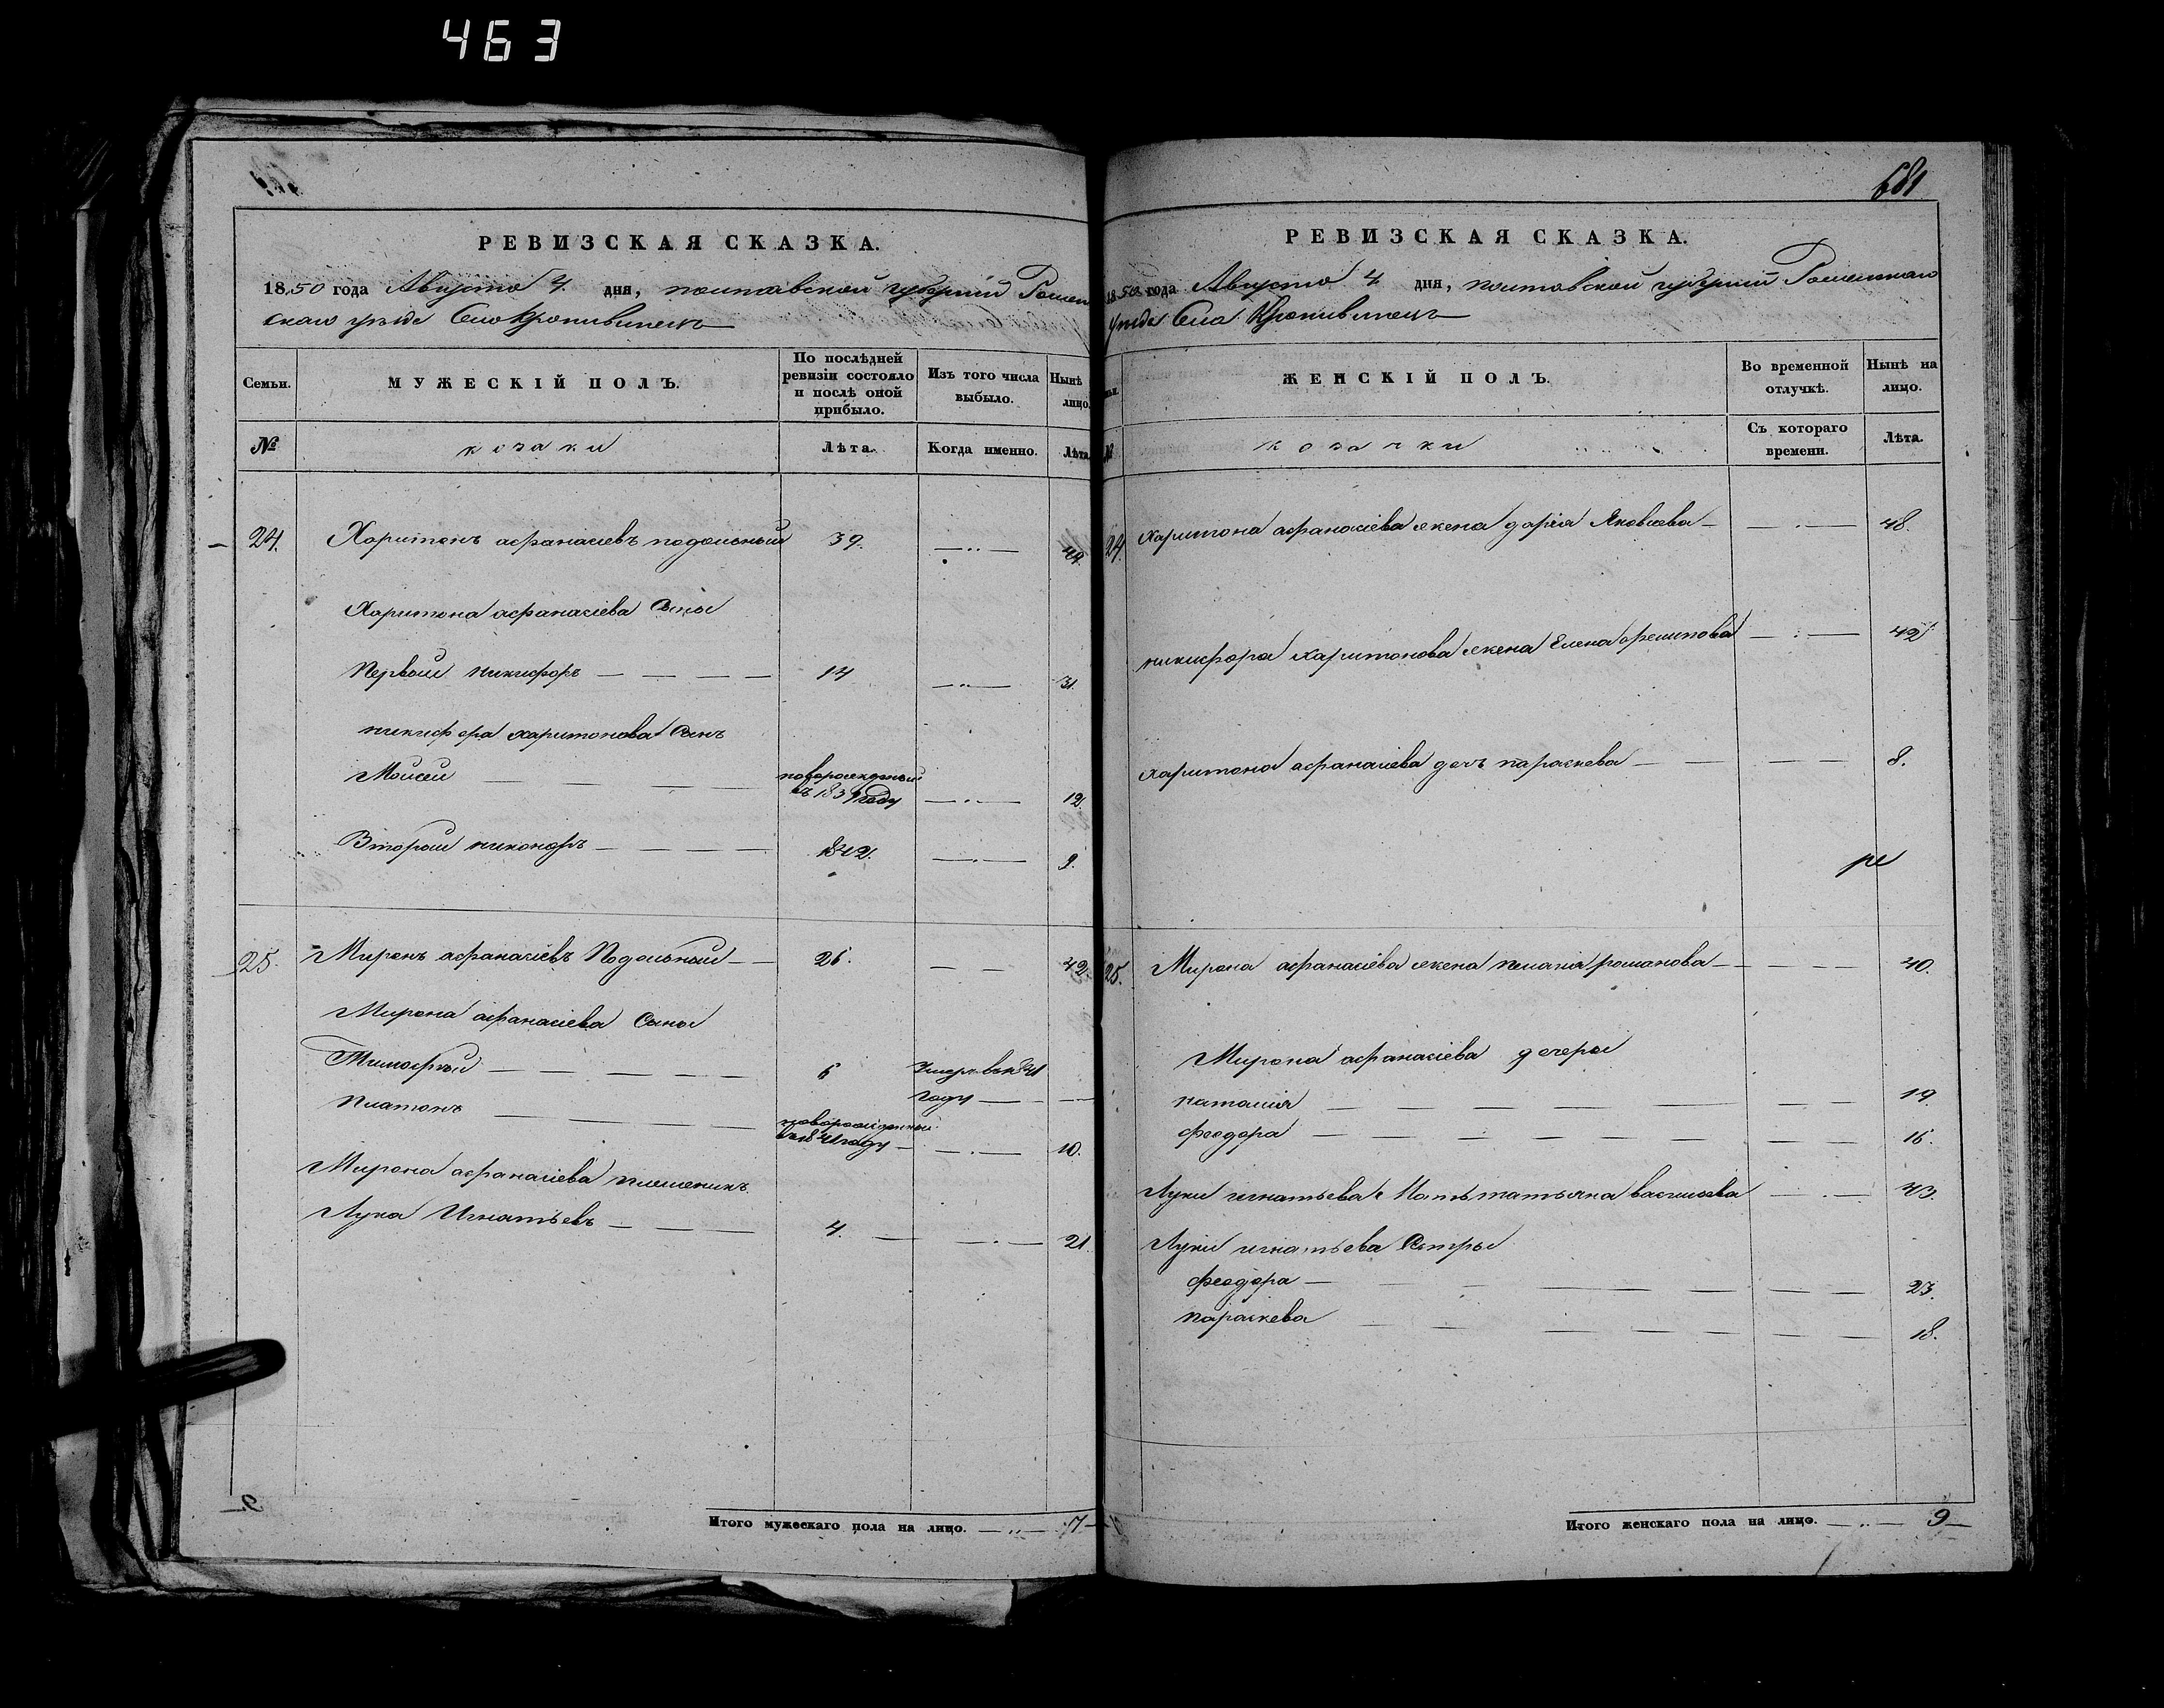 463
РЕВИЗСКАЯ СКАЗКА.
1850 года Августа 4. дня, полтавской губерніи Ромен
скаго уезда Села Кропивинецъ
Семьи. МУЖЕСКІЙ ПОЛЪ. По послѣдней ревизіи состояло и послѣ оной прибыло. Изъ того числа выбыло. Нынѣ лицо.
№ козаки Лѣта. Когда именно. Лѣта
24. Харитонъ афанасіевъ подольный 39.
Харитона афанасіева дѣти
Первый никифоръ — — — — 14 31.
никифора харитонова Сынъ
Моисей — — — новорожденный въ 1839 году 12.
Второй никоноръ — — — — 1842. 9.
25. Миронъ афанасіевъ Подольный — — 26. 42.
Мирона афанасіева Сыны
Тимофей — — — — — 6 Умеръ въ 1841 году
Платонъ — — — — новорожденный въ 1841 году 10.
Мирона афанасіева племеникъ
Лука Игнатьевъ — — — 4. 21.
Итого мужескаго пола на лицо. 7
681
РЕВИЗСКАЯ СКАЗКА.
1850 года Августа 4 дня, полтавской губерніи Роменскаго
уезда Села Кропивинецъ
ЖЕНСКІЙ ПОЛЪ. Во временной отлучкѣ. Нынѣ на лицо.
№ козачки Съ котораго времени. Лѣта.
24. Харитона афанасіева жена дарія Яковлева — 48.
никифора харитонова жена Елена 42
Харитона афанасіева дочь параскева — 8.
25. Мирона афанасіева жена пелагія романова — 40.
Мирона афанасіева дочери
наталія — — — — — 19.
феодора — — — — — 16.
Луки игнатьева Мать татьяна васильева 43.
Луки игнатьева Сестры
феодора — 23.
параскева 18.
Итого женскаго пола на лицо. 9